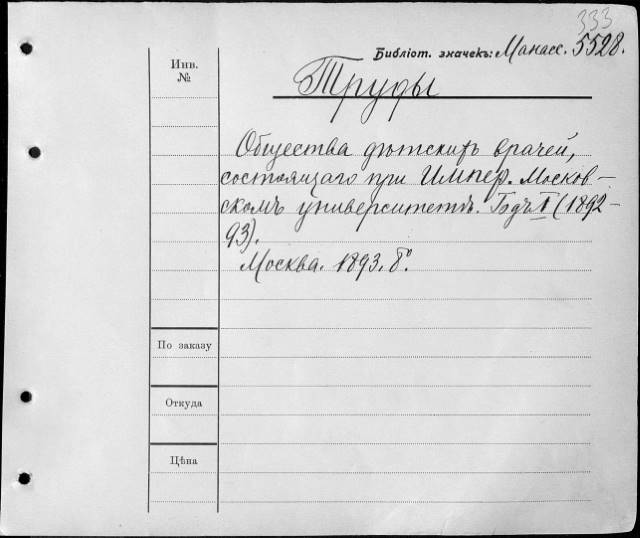 333
Библіот. значекъ: Манасс. 5528.
Инв.
№
Труды
Общества дѣтскихъ врачей,
состоящаго при Импер. Москов-
скомъ университетѣ. Годъ I (1892-
93).
Москва. 1893. 8°.
По заказу
Откуда
Цѣна